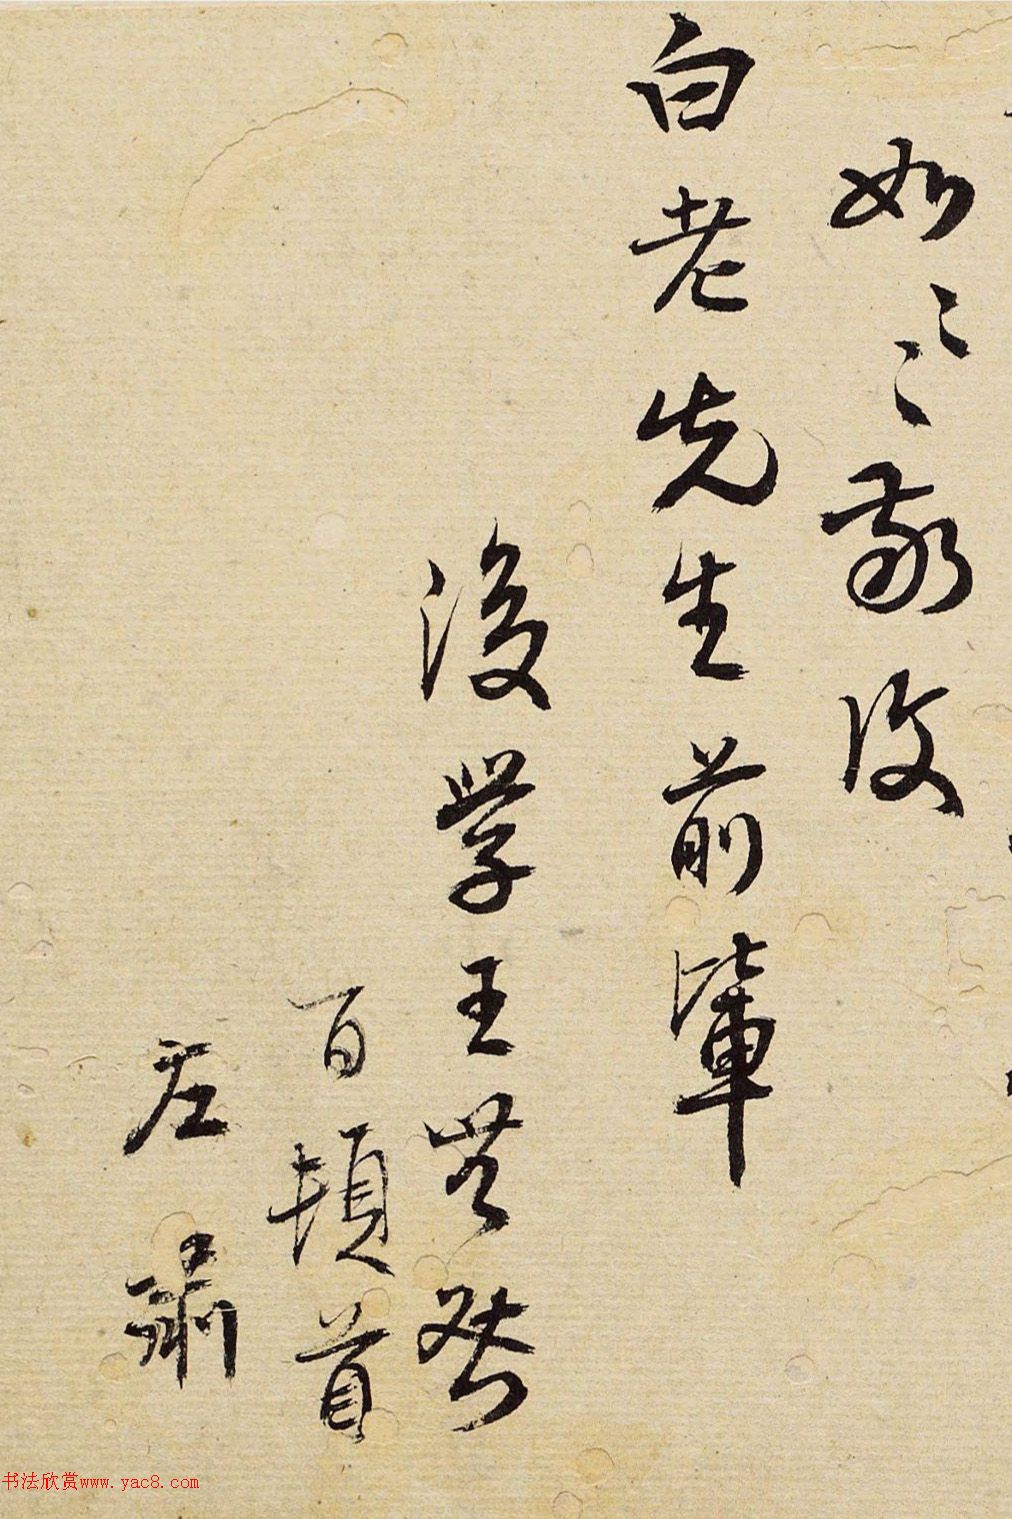 如〻敬復
白老先生前輩
後學王無咎
百頓首
左肅
书法欣赏www.yac8.com